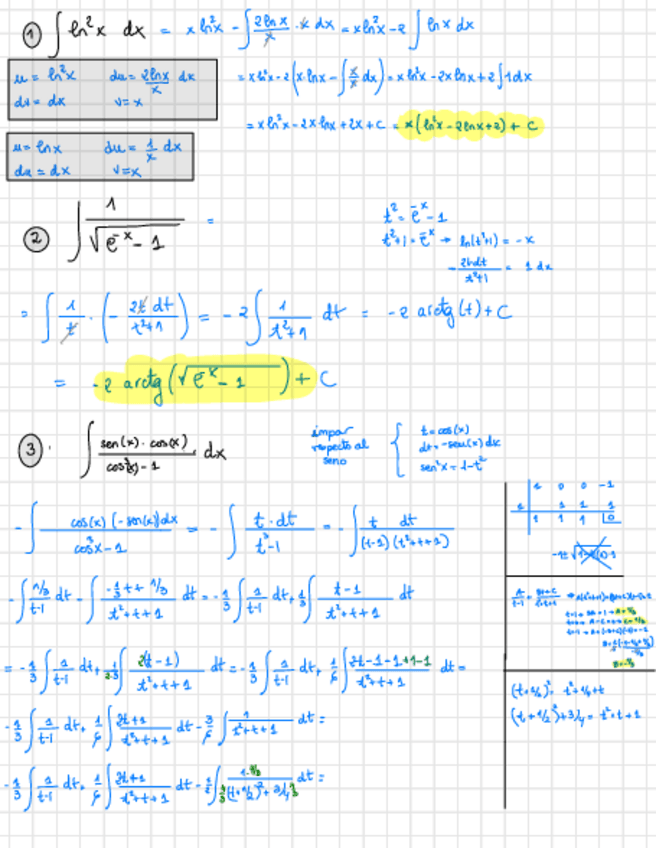 ① ∫ ln²x dx = x ln²x - ∫ 2lnx/x · x dx = x ln²x - 2 ∫ ln x dx
u = ln²x du = 2lnx/x dx
dv = dx v = x
= x ln²x - 2 (x·lnx - ∫ x/x dx) = x ln²x - 2x lnx + 2 ∫ 1 dx
= x ln²x - 2x lnx + 2x + C = x (ln²x - 2lnx + 2) + C
u = lnx du = 1/x dx
du = dx v = x
② ∫ 1/√(e^-x - 1) =
t² = e^-x - 1
t² + 1 = e^-x → ln(t²+1) = -x
- 2t dt/(t²+1) = 1 dx
= ∫ 1/t · (- 2t dt/(t²+1)) = -2 ∫ 1/(t²+1) dt = -2 arctg(t) + C
= -2 arctg(√(e^-x - 1)) + C
③ ∫ sen(x)·cos(x)/(cos³(x) - 1) dx
impar
respecto al
seno
t = cos(x)
dt = -sen(x) dx
sen²x = 1 - t²
- ∫ cos(x)(-sen(x))dx/(cos³x - 1) = - ∫ t·dt/(t³ - 1) = - ∫ t dt/((t-1)(t²+t+1))
1 0 0 -1
1 1 1 1
1 1 1 0
- ∫ 1/3/(t-1) dt - ∫ (-1/3 t + 1/3)/(t²+t+1) dt = -1/3 ∫ 1/(t-1) dt + 1/3 ∫ (t-1)/(t²+t+1) dt
= -1/3 ∫ 1/(t-1) dt + 1/(2·3) ∫ 2(t-1)/(t²+t+1) dt = -1/3 ∫ 1/(t-1) dt + 1/6 ∫ (2t-1-1+1-1)/(t²+t+1) dt =
-1/3 ∫ 1/(t-1) dt + 1/6 ∫ (2t+1)/(t²+t+1) dt - 3/6 ∫ 1/(t²+t+1) dt =
(t+1/2)² = t²+1/4+t
(t+1/2)²+3/4 = t²+t+1
-1/3 ∫ 1/(t-1) dt + 1/6 ∫ (2t+1)/(t²+t+1) dt - 1/2 ∫ 1·4/3/(4/3(t+1/2)² + 3/4·4/3) dt =